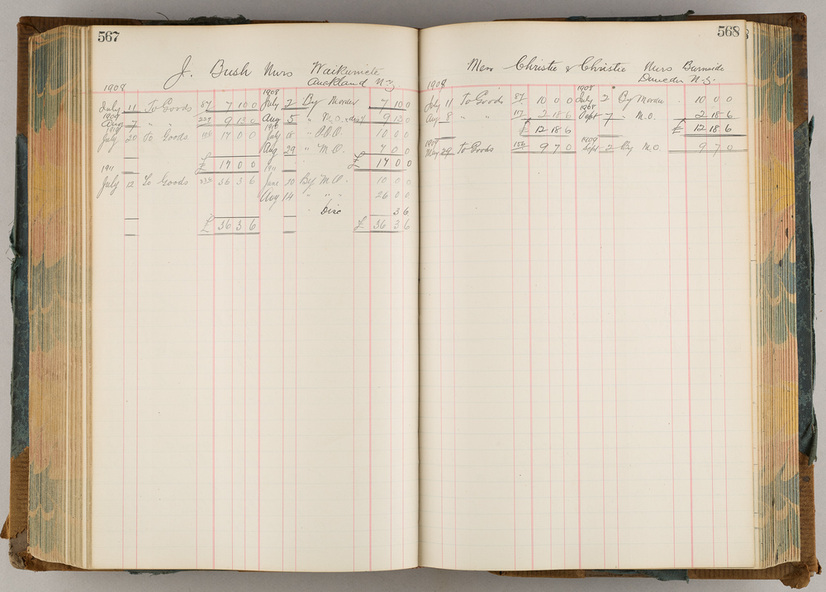 567
J. Bush Nurs Waikumete
Auckland N.Z
1908
1908
July 11 To Goods 87 7 10 0 July 2 By Money 7 10 0
1909
Aug 7 " " 229 9 13 0 Aug 5 " M.O. 9 13 0
1910
July 20 To Goods 17 0 0 July 18 " P.O.O 10 0 0
Aug 29 " M.O. 7 0 0
£ 17 0 0 £ 17 0 0
1911
July To Goods 232 36 3 6 June 10 By M.O. 10 0 0
Aug 14 " " " 26 0 0
" Disc 3 6
£ 36 3 6 £ 36 3 6
568
Mess Christie & Christie Nurs Burnside
Dunedin N.Z.
1908
1908
July 11 To Goods 87 10 0 0 July 2 By Money 10 0 0
1908
Aug 8 " " 117 2 18 6 Sept 7 " M.O. 2 18 6
£ 12 18 6 £ 12 18 6
1909
1909
May 29 To Goods 156 9 7 0 Sept 2 By M.O 9 7 0